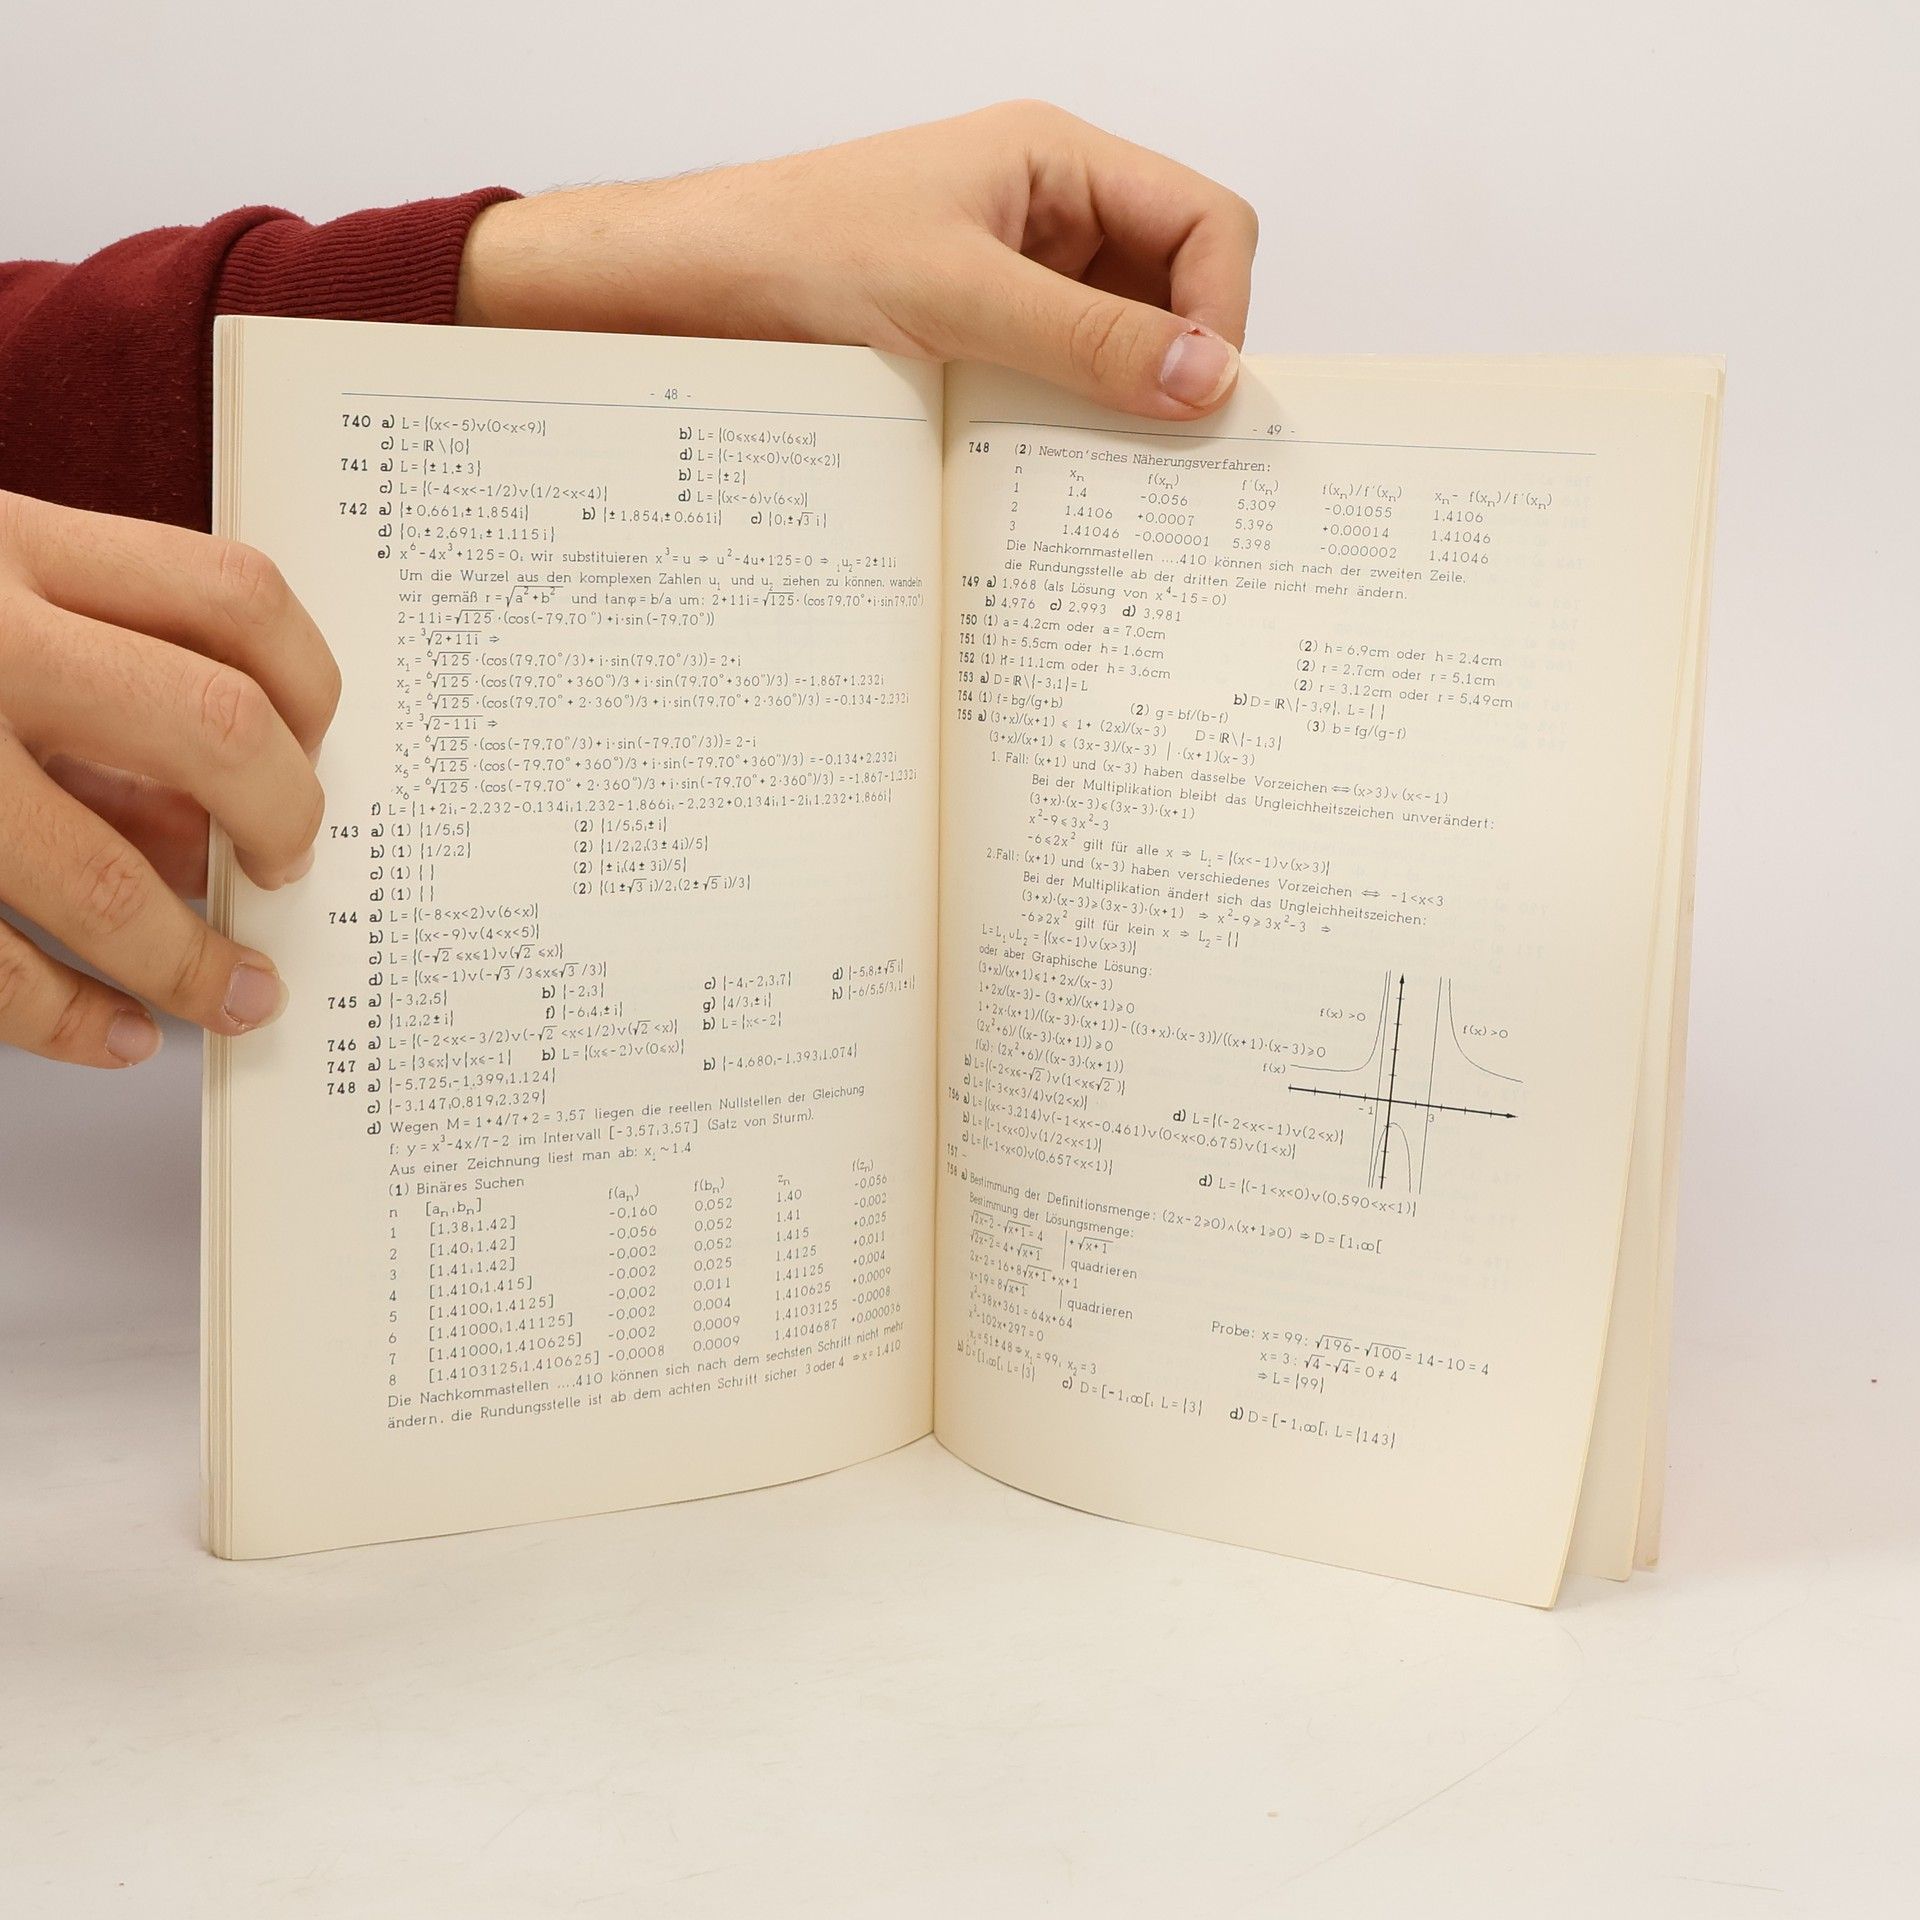 - 48 -
740 a) L={(x<-5)∨(0<x<9)} b) L={(0⩽x⩽4)∨(6⩽x)}
c) L=ℝ\{0} d) L={(-1<x<0)∨(0<x<2)}
741 a) L={±1,±3} b) L={±2}
c) L={(-4<x<-1/2)∨(1/2<x<4)} d) L={(x<-6)∨(6<x)}
742 a) {±0,661;±1,854i} b) {±1,854;±0,661i} c) {0;±√3 i}
d) {0;±2,691;±1,115i}
e) x⁶-4x³+125=0; wir substituieren x³=u ⇒ u²-4u+125=0 ⇒ ₁u₂=2±11i
Um die Wurzel aus den komplexen Zahlen u₁ und u₂ ziehen zu können, wandeln
wir gemäß r=√a²+b² und tanφ=b/a um: 2+11i=√125·(cos79,70°+i·sin79,70°)
2-11i=√125·(cos(-79,70°)+i·sin(-79,70°))
x=³√2+11i ⇒
x₁=⁶√125·(cos(79,70°/3)+i·sin(79,70°/3))=2+i
x₂=⁶√125·(cos(79,70°+360°)/3+i·sin(79,70°+360°)/3)=-1,867+1,232i
x₃=⁶√125·(cos(79,70°+2·360°)/3+i·sin(79,70°+2·360°)/3)=-0,134-2,232i
x=³√2-11i ⇒
x₄=⁶√125·(cos(-79,70°/3)+i·sin(-79,70°/3))=2-i
x₅=⁶√125·(cos(-79,70°+360°)/3+i·sin(-79,70°+360°)/3)=-0,134+2,232i
x₆=⁶√125·(cos(-79,70°+2·360°)/3+i·sin(-79,70°+2·360°)/3)=-1,867-1,232i
f) L={1+2i;-2,232-0,134i;1,232-1,866i;-2,232+0,134i;1-2i;1,232+1,866i}
743 a) (1) {1/5;5} (2) {1/5;5;±i}
b) (1) {1/2;2} (2) {1/2;2;(3±4i)/5}
c) (1) { } (2) {±i;(4±3i)/5}
d) (1) { } (2) {(1±√3 i)/2;(2±√5 i)/3}
744 a) L={(-8<x<2)∨(6<x)}
b) L={(x<-9)∨(4<x<5)}
c) L={(-√2⩽x⩽1)∨(√2⩽x)}
d) L={(x⩽-1)∨(-√3/3⩽x⩽√3/3)}
745 a) {-3;2;5} b) {-2;3} c) {-4;-2;3;7} d) {-5;8;±√5 i}
e) {1;2;2±i} f) {-6;4;±i} g) {4/3;±i} h) {-6/5;5/3;1±i}
746 a) L={(-2<x<-3/2)∨(-√2<x<1/2)∨(√2<x)} b) L={x<-2}
747 a) L={3⩽x}∨{x⩽-1} b) L={(x⩽-2)∨(0⩽x)}
748 a) {-5,725;-1,399;1,124} b) {-4,680;-1,393;1,074}
c) {-3,147;0,819;2,329}
d) Wegen M=1+4/7+2=3,57 liegen die reellen Nullstellen der Gleichung
f: y=x³-4x/7-2 im Intervall [-3,57;3,57] (Satz von Sturm).
Aus einer Zeichnung liest man ab: x₁~1,4
(1) Binäres Suchen
n [aₙ;bₙ] f(aₙ) f(bₙ) zₙ f(zₙ)
1 [1,38;1,42] -0,160 0,052 1,40 -0,056
2 [1,40;1,42] -0,056 0,052 1,41 -0,002
3 [1,41;1,42] -0,002 0,052 1,415 +0,025
4 [1,410;1,415] -0,002 0,025 1,4125 +0,011
5 [1,4100;1,4125] -0,002 0,011 1,41125 +0,004
6 [1,41000;1,41125] -0,002 0,004 1,410625 +0,0009
7 [1,41000;1,410625] -0,002 0,0009 1,4103125 -0,0008
8 [1,4103125;1,410625] -0,0008 0,0009 1,4104687 +0,000036
Die Nachkommastellen ....410 können sich nach dem sechsten Schritt nicht mehr
ändern, die Rundungsstelle ist ab dem achten Schritt sicher 3 oder 4 ⇒x=1,410
- 49 -
748 (2) Newton'sches Näherungsverfahren:
n xₙ f(xₙ) f'(xₙ) f(xₙ)/f'(xₙ) xₙ- f(xₙ)/f'(xₙ)
1 1,4 -0,056 5,309 -0,01055 1,4106
2 1,4106 +0,0007 5,396 +0,00014 1,41046
3 1,41046 -0,000001 5,398 -0,000002 1,41046
Die Nachkommastellen ....410 können sich nach der zweiten Zeile,
die Rundungsstelle ab der dritten Zeile nicht mehr ändern.
749 a) 1,968 (als Lösung von x⁴-15=0)
b) 4,976 c) 2,993 d) 3,981
750 (1) a=4,2cm oder a=7,0cm (2) h=6,9cm oder h=2,4cm
751 (1) h=5,5cm oder h=1,6cm (2) r=2,7cm oder r=5,1cm
752 (1) H=11,1cm oder h=3,6cm (2) r=3,12cm oder r=5,49cm
753 a) D=ℝ\{-3;1}=L b) D=ℝ\{-3;9}, L={ }
754 (1) f=bg/(g+b) (2) g=bf/(b-f) (3) b=fg/(g-f)
755 a) (3+x)/(x+1) ⩽ 1+ (2x)/(x-3) D=ℝ\{-1;3}
(3+x)/(x+1) ⩽ (3x-3)/(x-3) | ·(x+1)(x-3)
1. Fall: (x+1) und (x-3) haben dasselbe Vorzeichen⟺(x>3)∨(x<-1)
Bei der Multiplikation bleibt das Ungleichheitszeichen unverändert:
(3+x)·(x-3)⩽(3x-3)·(x+1)
x²-9⩽3x²-3
-6⩽2x² gilt für alle x ⇒ L₁={(x<-1)∨(x>3)}
2.Fall: (x+1) und (x-3) haben verschiedenes Vorzeichen ⟺ -1<x<3
Bei der Multiplikation ändert sich das Ungleichheitszeichen:
(3+x)·(x-3)⩾(3x-3)·(x+1) ⇒ x²-9⩾3x²-3 ⇒
-6⩾2x² gilt für kein x ⇒ L₂={}
L=L₁∪L₂={(x<-1)∨(x>3)}
oder aber Graphische Lösung:
(3+x)/(x+1)⩽1+2x/(x-3)
1+2x/(x-3)-(3+x)/(x+1)⩾0
1+2x·(x+1)/((x-3)·(x+1))-((3+x)·(x-3))/((x+1)·(x-3)⩾0
(2x²+6)/((x-3)·(x+1))⩾0
f(x): (2x²+6)/((x-3)·(x+1))
f(x)>0 f(x)>0
f(x)
-1 3
b) L={(-2<x⩽-√2)∨(1<x⩽√2)}
c) L={(-3<x<3/4)∨(2<x)} d) L={(-2<x<-1)∨(2<x)}
756 a) L={(x<-3,214)∨(-1<x<-0,461)∨(0<x<0,675)∨(1<x)}
b) L={(-1<x<0)∨(1/2<x<1)}
c) L={(-1<x<0)∨(0,657<x<1)} d) L={(-1<x<0)∨(0,590<x<1)}
757 -
758 a) Bestimmung der Definitionsmenge: (2x-2⩾0)∧(x+1⩾0) ⇒D=[1;∞[
Bestimmung der Lösungsmenge:
√2x-2-√x+1=4 |+√x+1
√2x-2=4+√x+1 |quadrieren
2x-2=16+8√x+1+x+1
x-19=8√x+1 |quadrieren
x²-38x+361=64x+64
x²-102x+297=0 Probe: x=99: √196-√100=14-10=4
₁x₂=51±48⇒x₁=99; x₂=3 x=3: √4-√4=0≠4
⇒L={99}
b) D=[1;∞[; L={3} c) D=[-1;∞[; L={3} d) D=[-1;∞[; L={143}